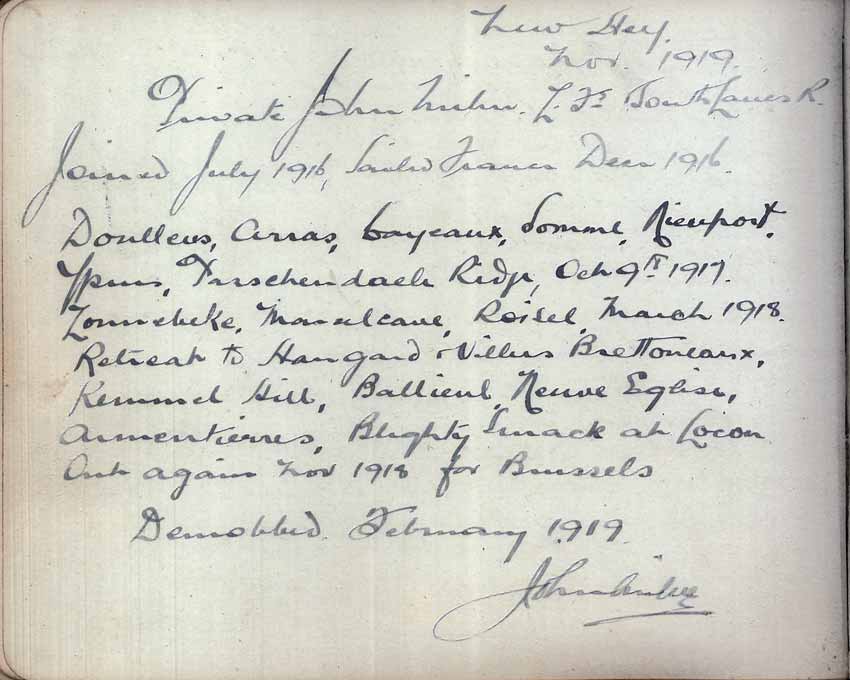 New Hey.
Nov. 1919.
Private John L. Fs. South Lancs R.
Joined July 1916, Landed France Decr 1916.
Doullens, Arras, Bayeaux, Somme, Nieuport,
Ypres, Passchendaele Ridge, Oct 9th 1917.
Zonnebeke, Marcelcave, Roisel, March 1918.
Retreat to Hangard & Villers Brettoneaux,
Kemmel Hill, Ballieul, Neuve Eglise,
Armentierres, Blighty Smack at Locon
Out again Nov 1918 for Brussels
Demobbed. February 1919.
John